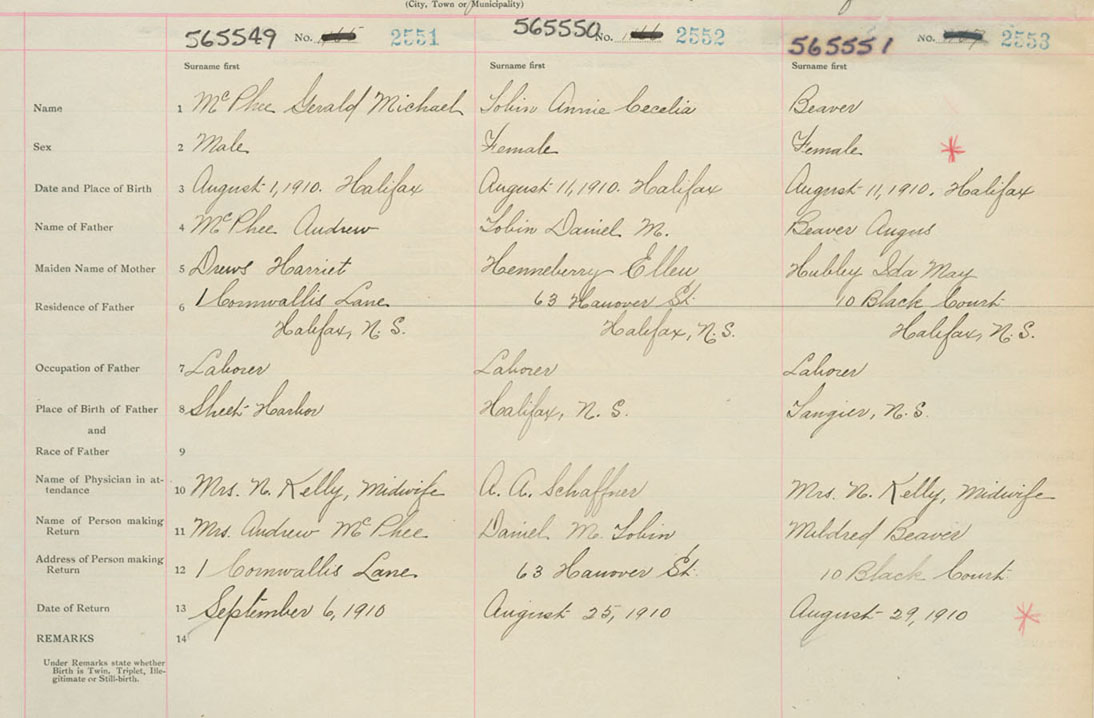 (City, Town or Municipality)
565549 No. 2551 565550 No. 2552 565551 No. 2553
Surname first Surname first Surname first
Name 1 McPhee Gerald Michael Tobin Annie Cecelia Beaver
Sex 2 Male Female Female
Date and Place of Birth 3 August 1, 1910. Halifax August 11, 1910. Halifax August 11, 1910. Halifax
Name of Father 4 McPhee Andrew Tobin Daniel M. Beaver Angus
Maiden Name of Mother 5 Drews Harriet Henneberry Ellen Hubley Ida May
Residence of Father 6 1 Cornwallis Lane 63 Hanover St. 10 Black Court
Halifax, N. S. Halifax, N. S. Halifax, N. S.
Occupation of Father 7 Laborer Laborer Laborer
Place of Birth of Father 8 Sheet Harbor Halifax, N. S. Tangier, N. S.
and
Race of Father 9
Name of Physician in at-
tendance 10 Mrs. N. Kelly, Midwife A. A. Schaffner Mrs. N. Kelly, Midwife
Name of Person making
Return 11 Mrs. Andrew McPhee Daniel M. Tobin Mildred Beaver
Address of Person making
Return 12 1 Cornwallis Lane 63 Hanover St. 10 Black Court
Date of Return 13 September 6, 1910 August 25, 1910 August 29, 1910
REMARKS 14
Under Remarks state whether
Birth is Twin, Triplet, Ille-
gitimate or Still-birth.